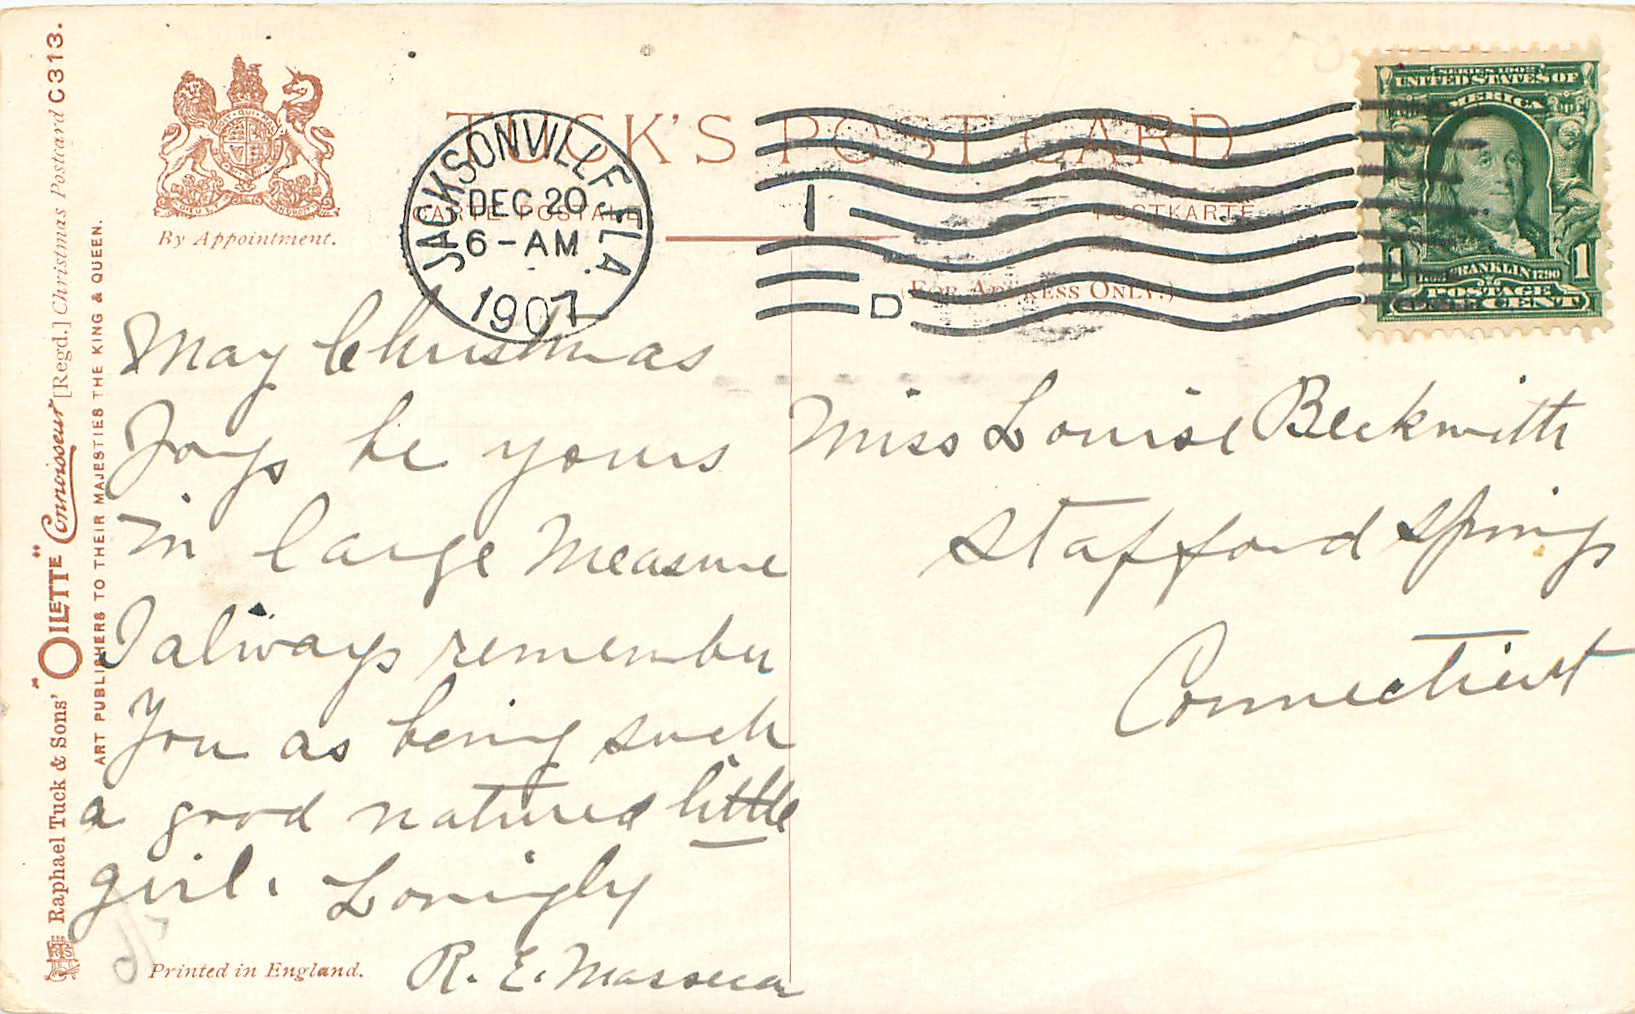 Raphael Tuck & Sons' "OILETTE" Connoisseur [Regd.] Christmas Postcard C313.
ART PUBLISHERS TO THEIR MAJESTIES THE KING & QUEEN.
By Appointment.
TUCK'S POST CARD
CARTE POSTALE POSTKARTE
(FOR ADDRESS ONLY.)
JACKSONVILLE, FLA.
DEC 20
6-AM
1907
1
D
SERIES 1902
UNITED STATES OF
AMERICA
FRANKLIN 1790
POSTAGE
1 ONE CENT 1
May Christmas
Joys be yours
in large measure
I always remember
You as being such
a good natured little
girl. Lovingly
R. E.
Miss Louise Beckwith
Stafford Springs
Connecticut
Printed in England.